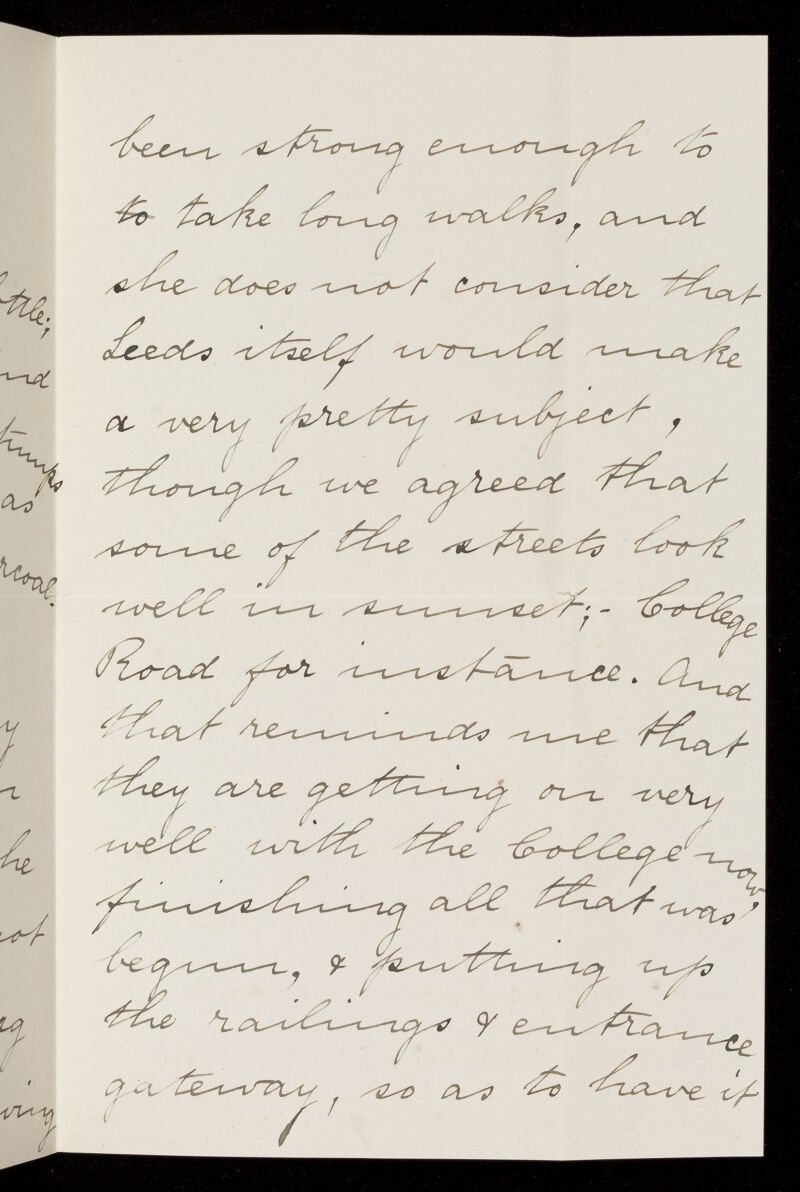 ttle;
nd
as
rcoal.
y
n
he
not
ng
ving
been strong enough to
to take long walks, and
she does not consider that
Leeds itself would make
a very pretty subject,
though we agreed that
some of the streets look
well in sunset;- College
Road for instance. And
that reminds me that
they are getting on very
well with the College now,
finishing all that was
begun, & putting up
the railings & entrance
gateway, so as to have it